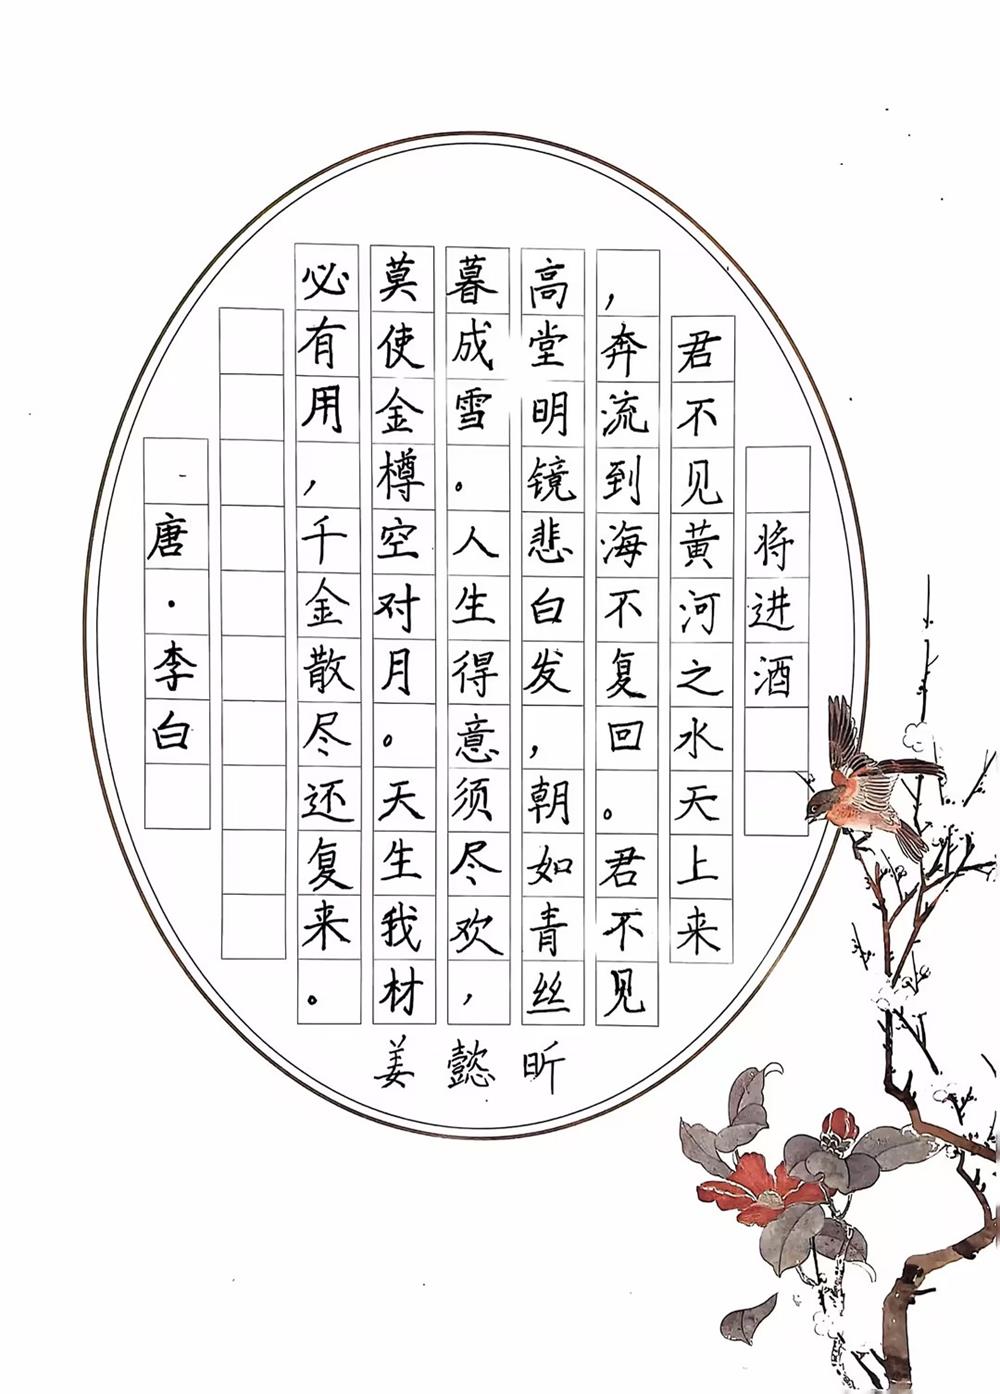 将进酒
君不见黄河之水天上来
，奔流到海不复回。君不见
高堂明镜悲白发，朝如青丝
暮成雪。人生得意须尽欢，
莫使金樽空对月。天生我材
必有用，千金散尽还复来。
唐·李白
姜懿昕